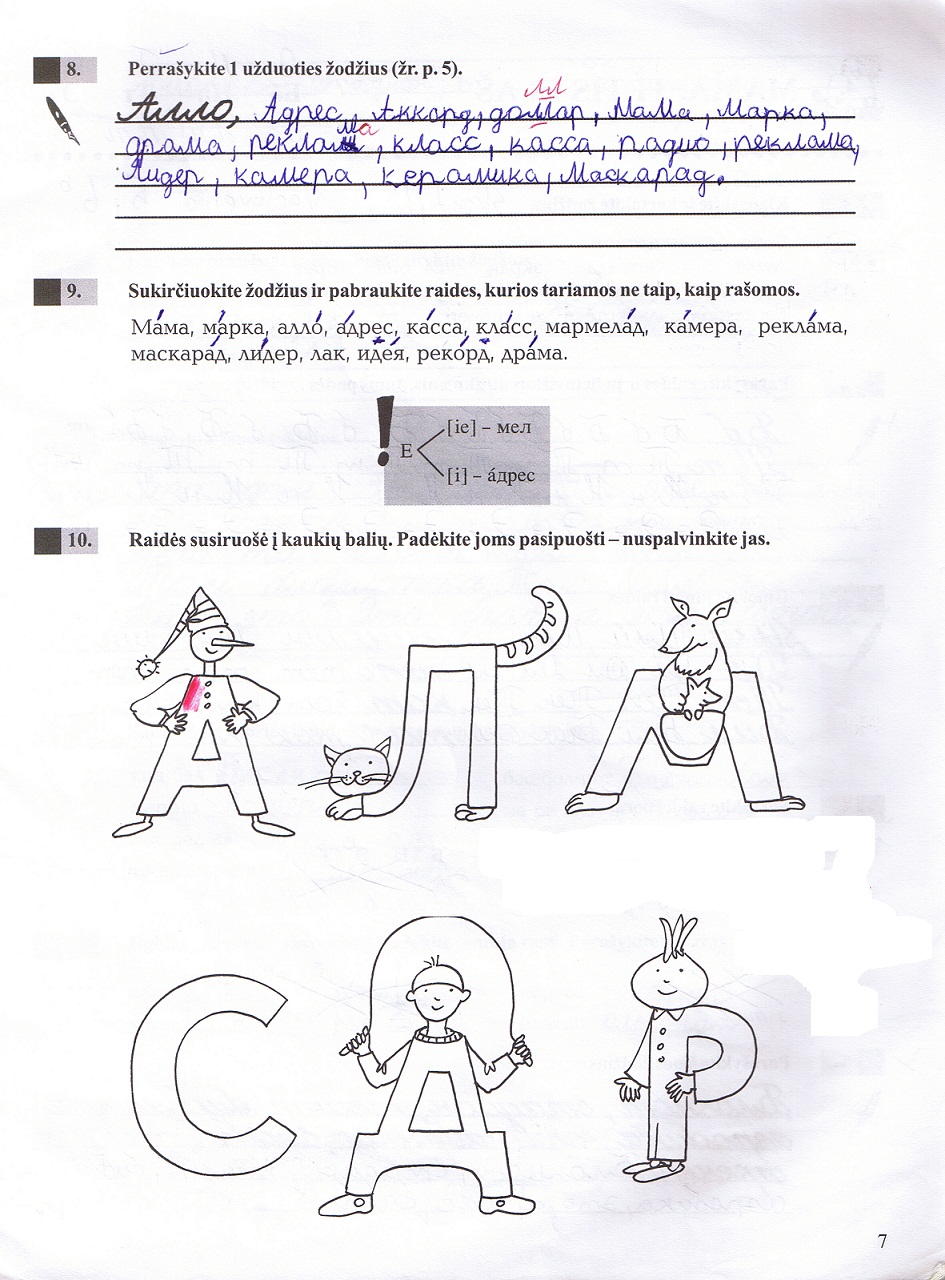 8. Perrašykite 1 užduoties žodžius (žr. p. 5).
лл
Алло, Адрес, Аккорд, доллар, Мама, Марка,
ма
драма, реклама, класс, касса, радио, реклама,
Лидер, камера, керамика, Маскарад.
9. Sukirčiuokite žodžius ir pabraukite raides, kurios tariamos ne taip, kaip rašomos.
Ма́ма, ма́рка, алло́, а́дрес, ка́сса, кла́сс, мармела́д, ка́мера, рекла́ма,
маскара́д, ли́дер, лак, иде́я, реко́рд, дра́ма.
! Е [ie] – мел
[i] – а́дрес
10. Raidės susiruošė į kaukių balių. Padėkite joms pasipuošti – nuspalvinkite jas.
А Л Л
С А Р
7